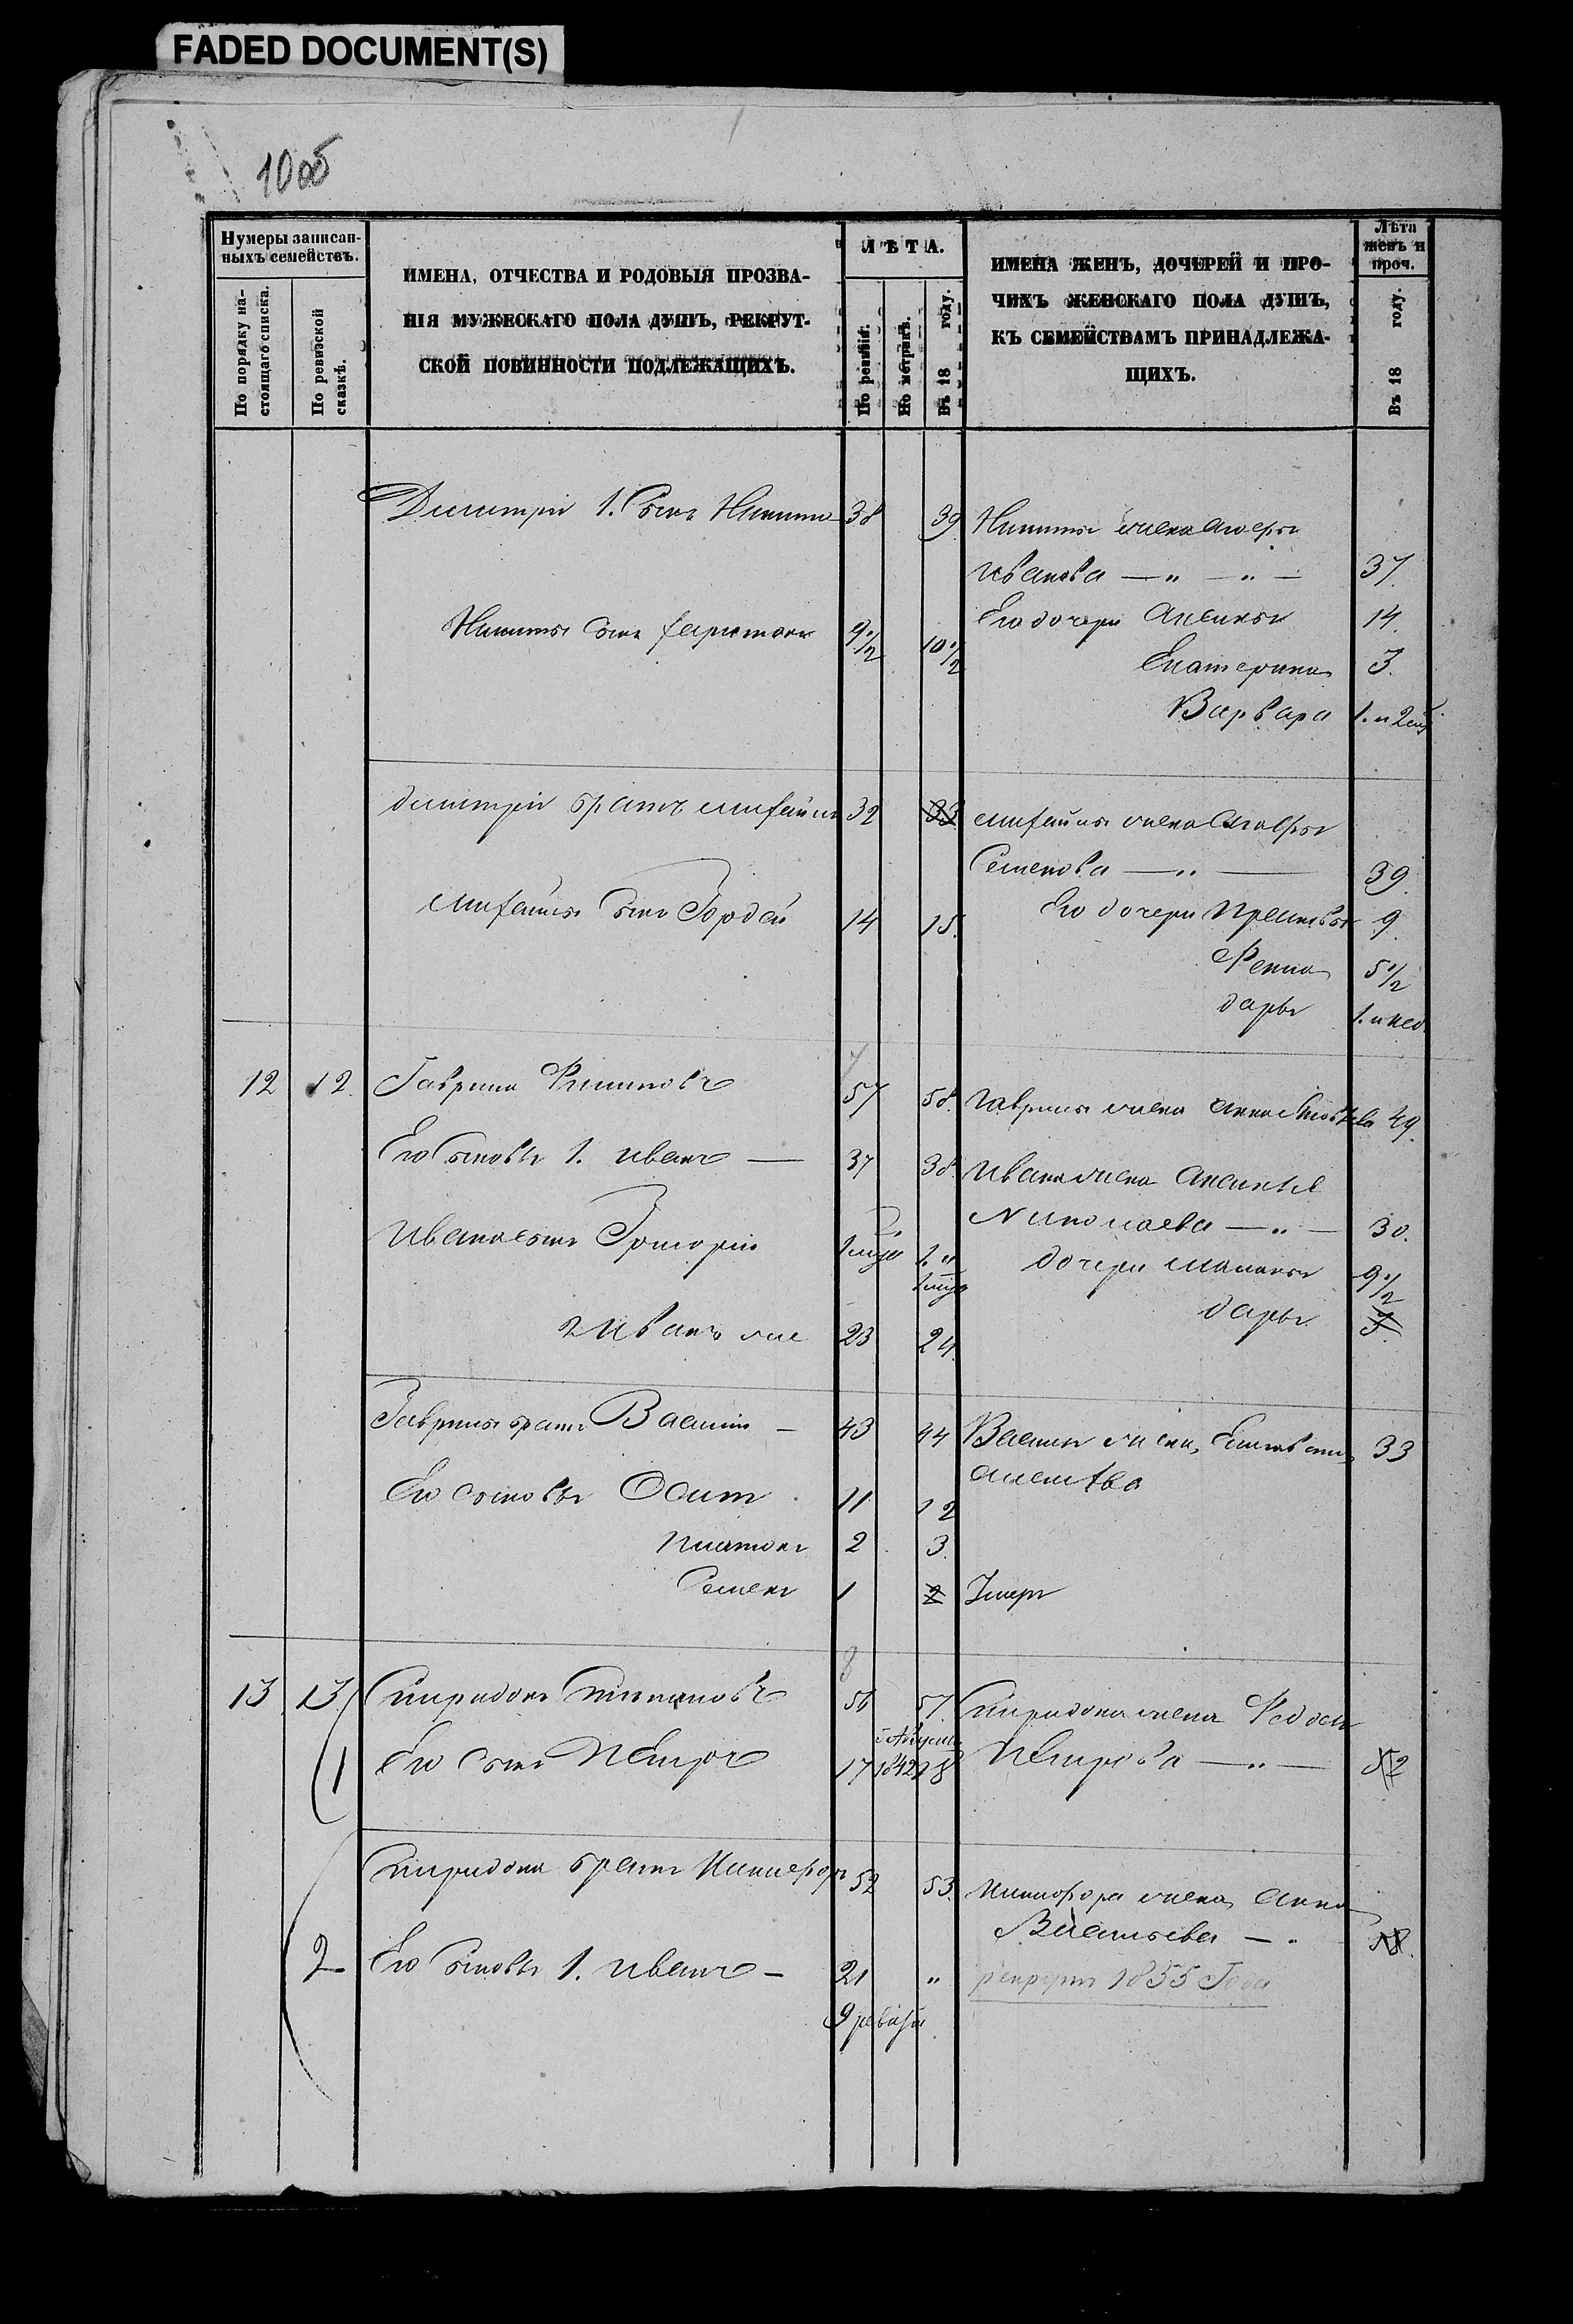 FADED DOCUMENT(S)
10об
Нумеры записан-
ныхъ семействъ.
По порядку на-
стоящаго списка.
По ревизской
сказкѣ.
ИМЕНА, ОТЧЕСТВА И РОДОВЫЯ ПРОЗВА-
НІЯ МУЖЕСКАГО ПОЛА ДУШЪ, РЕКРУТ-
СКОЙ ПОВИННОСТИ ПОДЛЕЖАЩИХЪ.
ЛѢТА.
По ревизіи.
По метрикѣ.
Въ 18 году.
ИМЕНА ЖЕНЪ, ДОЧЕРЕЙ И ПРО-
ЧИХЪ ЖЕНСКАГО ПОЛА ДУШЪ,
КЪ СЕМЕЙСТВАМЪ ПРИНАДЛЕЖА-
ЩИХЪ.
Лѣта
женъ и
проч.
Въ 18 году.
Дмитрія 1. Сынъ Никита 38 39 Никиты жена
Иванова — „ — „ — 37.
Никиты сынъ Харитонъ 9 1/2 10 1/2 Его дочери Аксинья 14.
Екатерина 3.
Варвара 1. и
Дмитрія братъ Михайла 32 33 Михайлы жена
Семенова — „ — 39.
Михайлы сынъ Гордей 14 15. Его дочери Прасковья 9
Фекла 5 1/2
Дарья 1. и нед.
12 12. Гаврила Филиповъ 57 58. Гаврилы жена Анна 49.
Его сыновья 1. Иванъ — 37 38. Ивана жена Аксинья
Николаева — „ — 30.
Ивана сынъ Григорій 1. и
дочери Маланья 9 1/2
Дарья
2 Иванъ же 23 24.
Гаврилы братъ Василій — 43 44 Василья жена Елизавета 33
Алексѣева
Его сыновья Осипъ 11 12
Платонъ 2 3.
Семенъ 1 2 Умеръ
13 13 Спиридонъ Степановъ 56 57. Спиридона жена Федосья
1 Его сынъ Петръ 17 1842 18 Петрова — „ — 52
Спиридона братъ Никифоръ 52 53. Никифора жена Анна
Васильева — „
2 Его сыновья 1. Иванъ — 21 „ рекрутъ 1855 Года
9 ревизіи